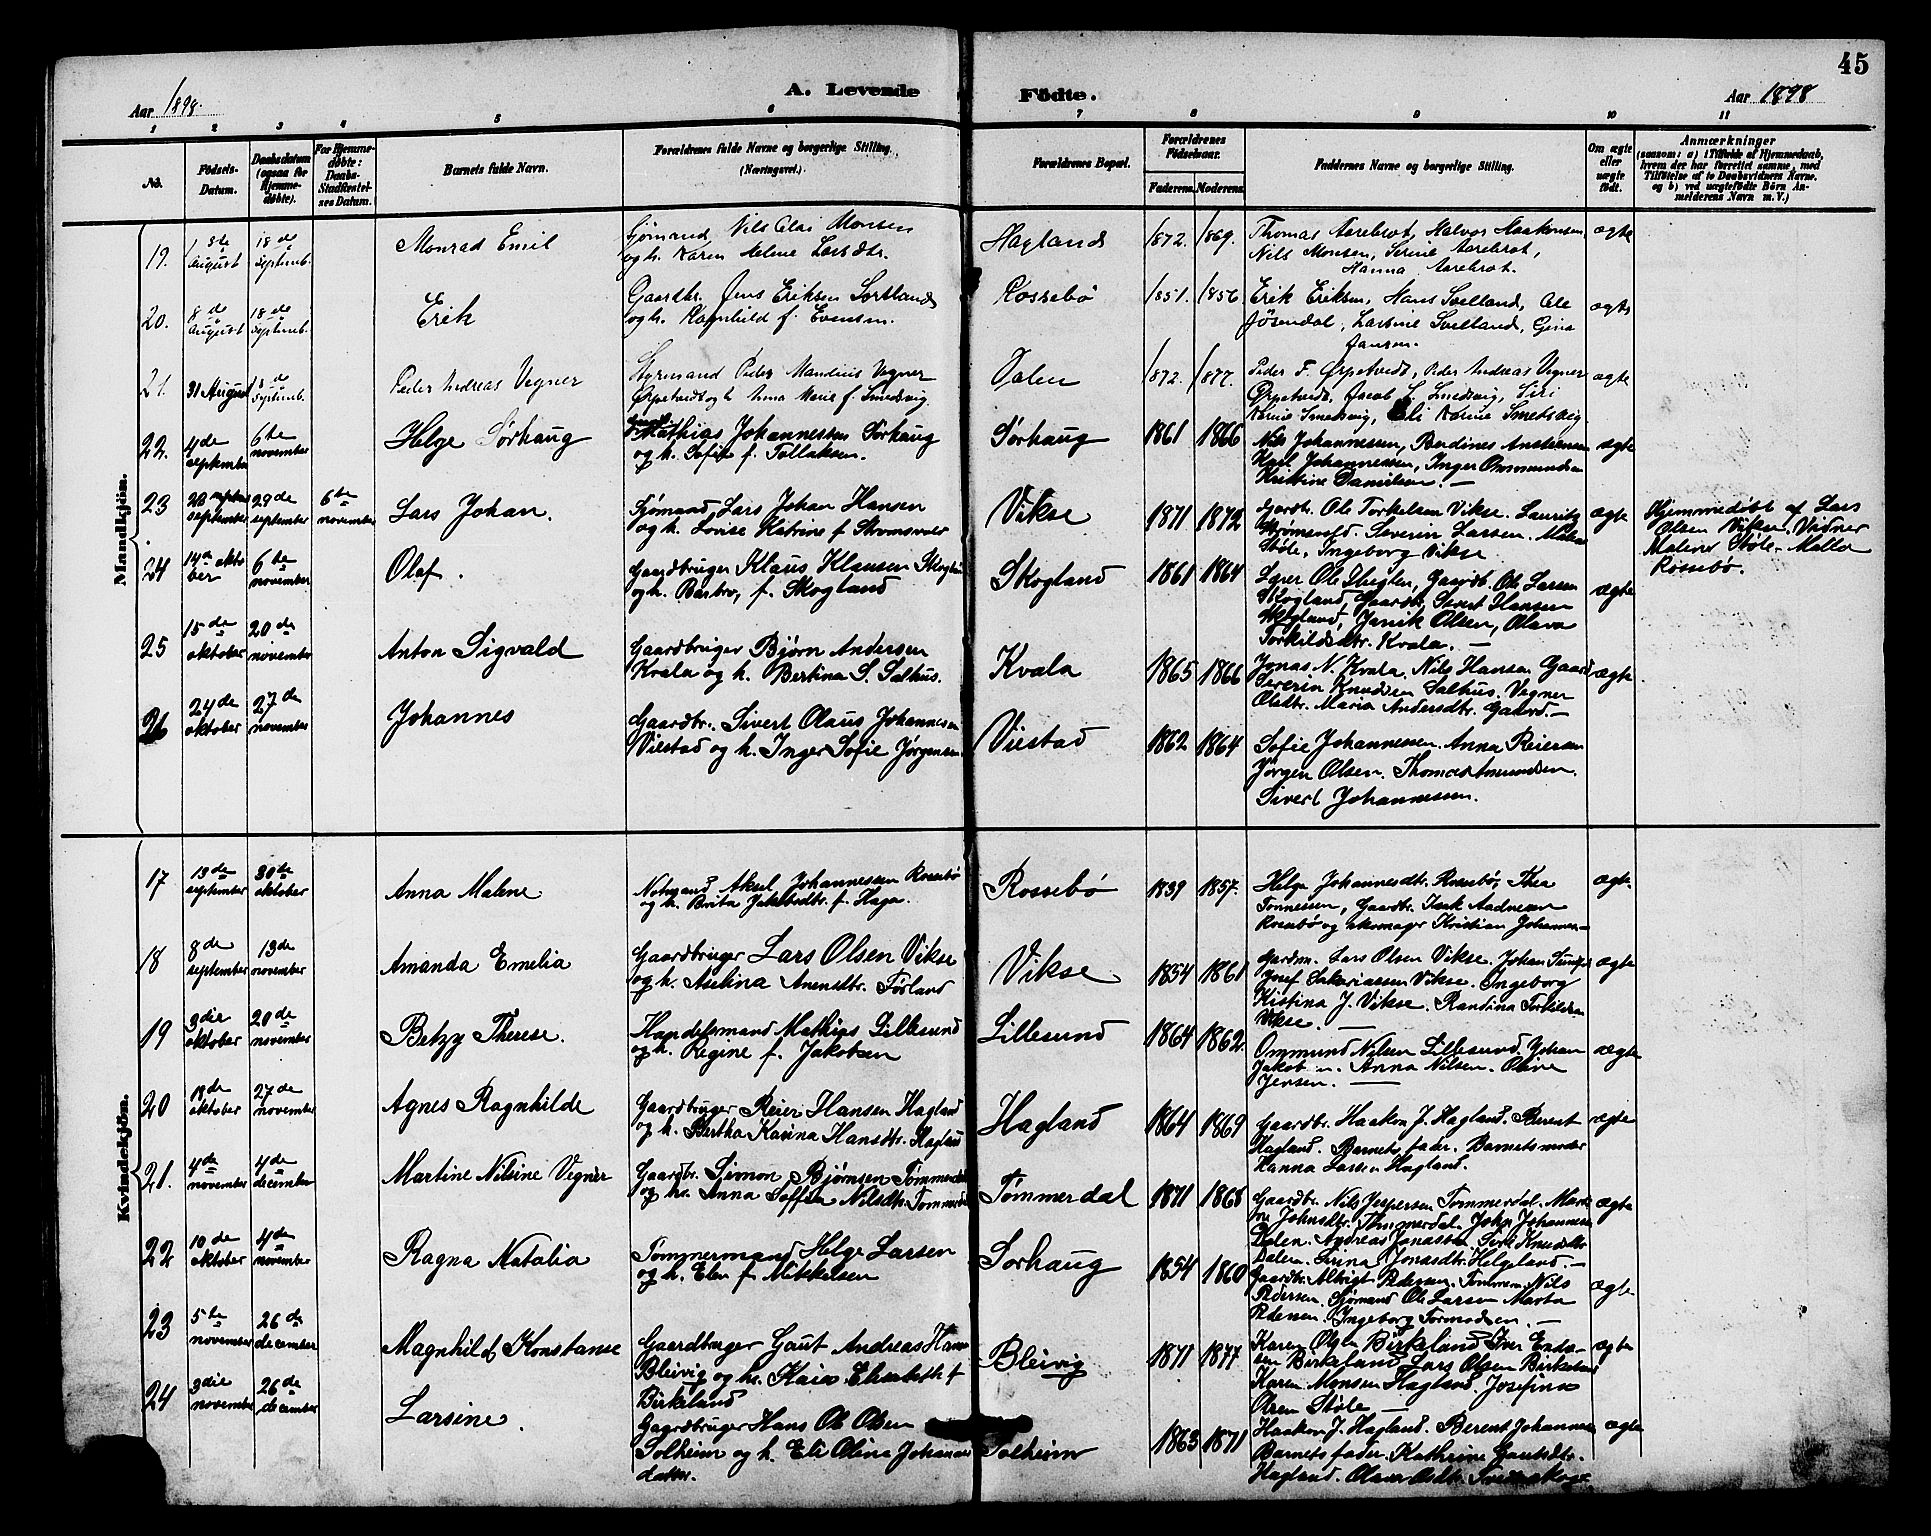 45
Aar 1898.
A. Levende Födte.
Aar 1898
1 2 3 4 5 6 7 8 9 10 11
No.
Födsels-Datum.
Daabsdatum (ogsaa for Hjemmedöbte).
For Hjemmedöbte: Daabs-Stadfæstelses Datum.
Barnets fulde Navn.
Forældrenes fulde Navne og borgerlige Stilling. (Næringsvei.)
Forældrenes Bopæl.
Forældrenes Födselsaar.
Faderens. Moderens.
Faddernes Navne og borgerlige Stilling.
Om ægte eller uægte födt.
Anmærkninger
(saasom: a) i Tilfælde af Hjemmedaab, hvem der har forrettet samme, med Tilföielse af to Daabsvidners Navne, og b) ved uægtefödte Börn Anmelderens Navn m. V.)
Mandkjön.
19. 1ste August 18de Septemb. Monrad Emil
Sjømand Nils Olai Monsen
og h. Karen Helene Larsdtr.
Hagland 1872. 1869.
Thomas Aarebrot, Halvor Haakonsen,
Nils Monsen, Serine Aarebrot,
Hanna Aarebrot.
ægte
20. 8de August 18de Septemb. Erik
Gaardbr. Jens Eriksen Sortland
og h. Ragnhild f. Evensen.
Rossebø 1851. 1856.
Erik Eriksen, Hans Svelland, Ole
Jøsendal, Larsine Svelland, Gina
Jansen.
ægte
21. 31 August 18de Septemb. Peder Andreas Vegner
Styrmand Peder Mandius Vegner
Ørpetvedt og h Anna Marie f. Smedsvig.
Dalen 1872. 1877.
Peder F. Ørpetvedt, Peder Andreas Vegner
Ørpetvedt, Jacob L. Smedsvig, Siri
Karine Smedsvig, Eli Karine Smedsvig
ægte
22. 4de september 6te november Helge Sørhaug
Mathias Johannessen Sørhaug
og h. Sofie f. Tollaksen.
Sørhaug 1861 1866
Nils Johannessen, Berdines Anstensen
Karl Johannessen, Inger Ommundsen
Kristine Danielsen. —
ægte
23 september 29de september 6te november Lars Johan.
Sjømand Lars Johan Hansen
og h. Lovise Katrine f Stromsvold
Vikse 1871 1872
Gardb. Ole Torkelsen Vikse. Laurits
Strømsvold. Severin Larsen. Malene
Støle, Ingeborg Vikse
ægte
Hjemmedøbt af Lars
Olsen Vikse. Vidner
Malene Støle - Malla
Røssebø.
24 14de oktober 6te november Olaf.
Gaardbruger Klaus Klausen Skogland
og h. Barbro, f. Skogland
Skogland 1861 1864
Lærer Ole Thegten, Gaardb. Ole Larsen
Skogland, Gaardb. Sivert Hansen
Skogland, Janik Olsen, Olava
Torkildsdtr. Kvala. —
ægte
25 15de oktober 20de november Anton Sigvald
Gaardbruger Bjørn Andersen
Kvala og h. Bertina S. Salhus.
Kvala 1865 1866
Jonas N. Kvala. Nils Hansen Gaard
Severin Knudsen Salhus. Vegner
Olsdtr. Maria Andersdtr. Gaard. —
ægte
26 24de oktober 27de november Johannes
Gaardbr. Sivert Olaus Johannesen
Viestad og h. Inger Sofie Jørgensen
Viestad 1862 1864
Sofie Johannessen. Anna Reiersen
Jørgen Olsen. Thomas Amundsen.
Sivert Johannessen.
Kvindekjön.
17 13de september 30te oktober Anna Malene
Notmand Aksel Johannessen Rossebø
og h. Brita Jakobsdtr. f. Haga.
Rossebø 1839 1857.
Helga Johannesdtr. Rossebø, Thea
Tonnessen, Gaardbr. Isak Aadnesen
Rossebø og skomager Kristian Johannes—
ægte
18 8de september 13de november Amanda Emelia
Gaardbruger Lars Olsen Vikse
og h. Aselina Anensdtr. Førland
Vikse 1854 1861
Gardm. Lars Olsen Vikse. Johan
Josef Sakariassen Vikse. Ingeborg
Kistina J. Vikse. Randina Torkildsen
Vikse. —
ægte
19 3die oktober 20de november Betzy Therese.
Handelsmand Mathias Lillesund
og h. Regine f. Jakobsen
Lillesund 1864 1862.
Ommund Nilsen Lillesund. Johan
Jakobsen. Anna Nilsen. Oline
Jensen. —
ægte
20 19de oktober 27de november Agnes Ragnhilde
Gaardbruger Reier Hansen Hagland
og h. Bertha Karina Hansdtr. Hagland
Hagland 1864 1869
Gaardbr. Haakon J. Hagland. Berent
Hagland. Barnets fader. Barnets moder
Hanna Larsen Hagland.
ægte
21. 4de november 4de december Martine Nilsine Vegner
Gaardbr. Simon Bjørnsen Tømmerdal
og h. Anna Soffia Nilsdtr. Tømmerdal
Tømmerdal 1871 1868
Gaardbr. Nils Jespersen Tommerdal. Marta
Johnsdtr. Tømmerdal. John Johannesen
Dalen. Andreas Jonassen. Siri Knudsdtr
Dalen. Sirina Jonasdtr. Helgeland. —
ægte
22 10de oktober 4de november Ragna Natalia
Tømmermand Helge Larsen
og h. Elen f Mikkelsen
Sorhaug 1854 1860
Gaardbr. Albrigt Pedersen. Tommerm. Nils
Pedersen. Sjømand Ole Larsen Marta
Pedersen Ingeborg Tormodsen. —
ægte
23 5te november 26de december Magnhild Konstanse
Gaardbruger Gaut Andreas Hansen
Bleivig og h. Kaia Elisabeth f
Birkeland
Bleivig 1871 1877
Karen Olsen Birkeland Iver Enda-
sen Birkeland Lars Olsen Birkeland
Karen Monsen Hagland. Josefina
Olsen Støle —
ægte
24 3die november 26de december Larsine.
Gaardbruger Hans Ob Olsen
Solheim og h. Eli Olina Johannes
datter.
Solheim 1863 1871
Haakon J. Hagland. Berent Johannes
Barnets fader. Kathrine Gautsdtr.
Hagland.
ægte